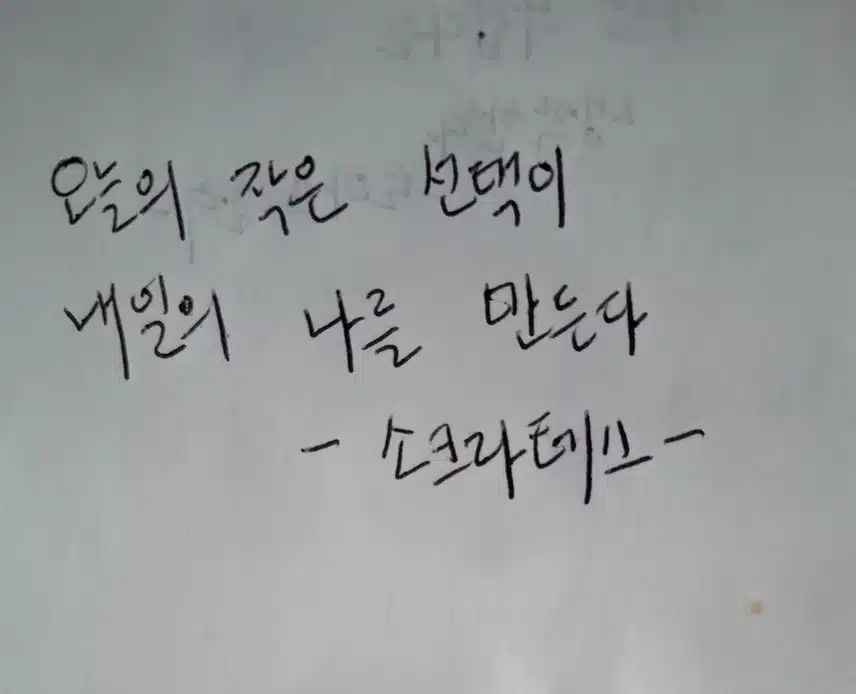 오늘의 작은 선택이
내일의 나를 만든다
- 소크라테스 -